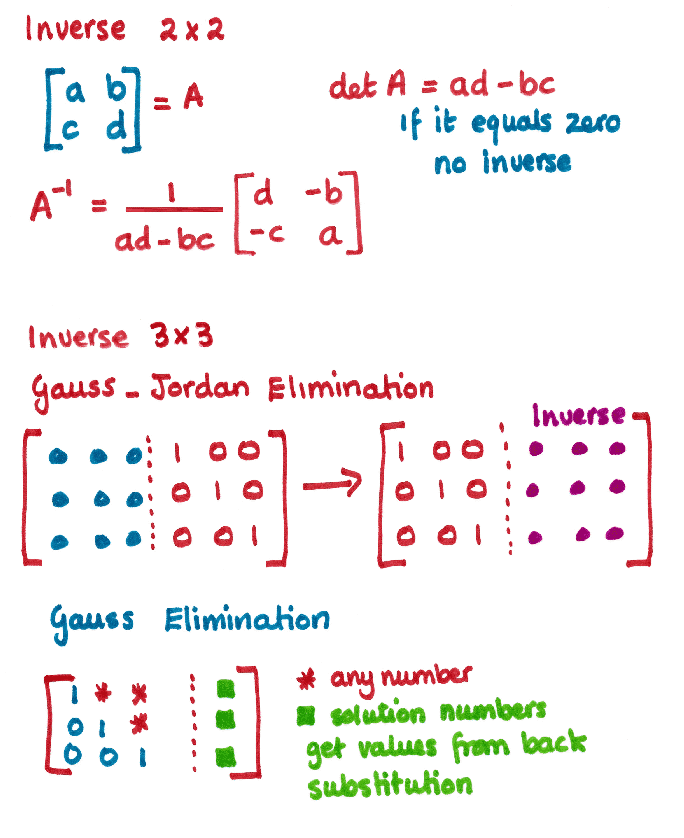 Inverse 2x2
[a b
c d] = A
det A = ad - bc
If it equals zero
no inverse
A⁻¹ = 1/(ad - bc) [d -b
-c a]
Inverse 3x3
Gauss - Jordan Elimination
Inverse
[• • • ⋮ 1 0 0 → 1 0 0 ⋮ • • •
• • • ⋮ 0 1 0 → 0 1 0 ⋮ • • •
• • • ⋮ 0 0 1] → [0 0 1 ⋮ • • •]
Gauss Elimination
[1 * * ⋮ ■
0 1 * ⋮ ■
0 0 1 ⋮ ■]
* any number
■ solution numbers
get values from back
substitution